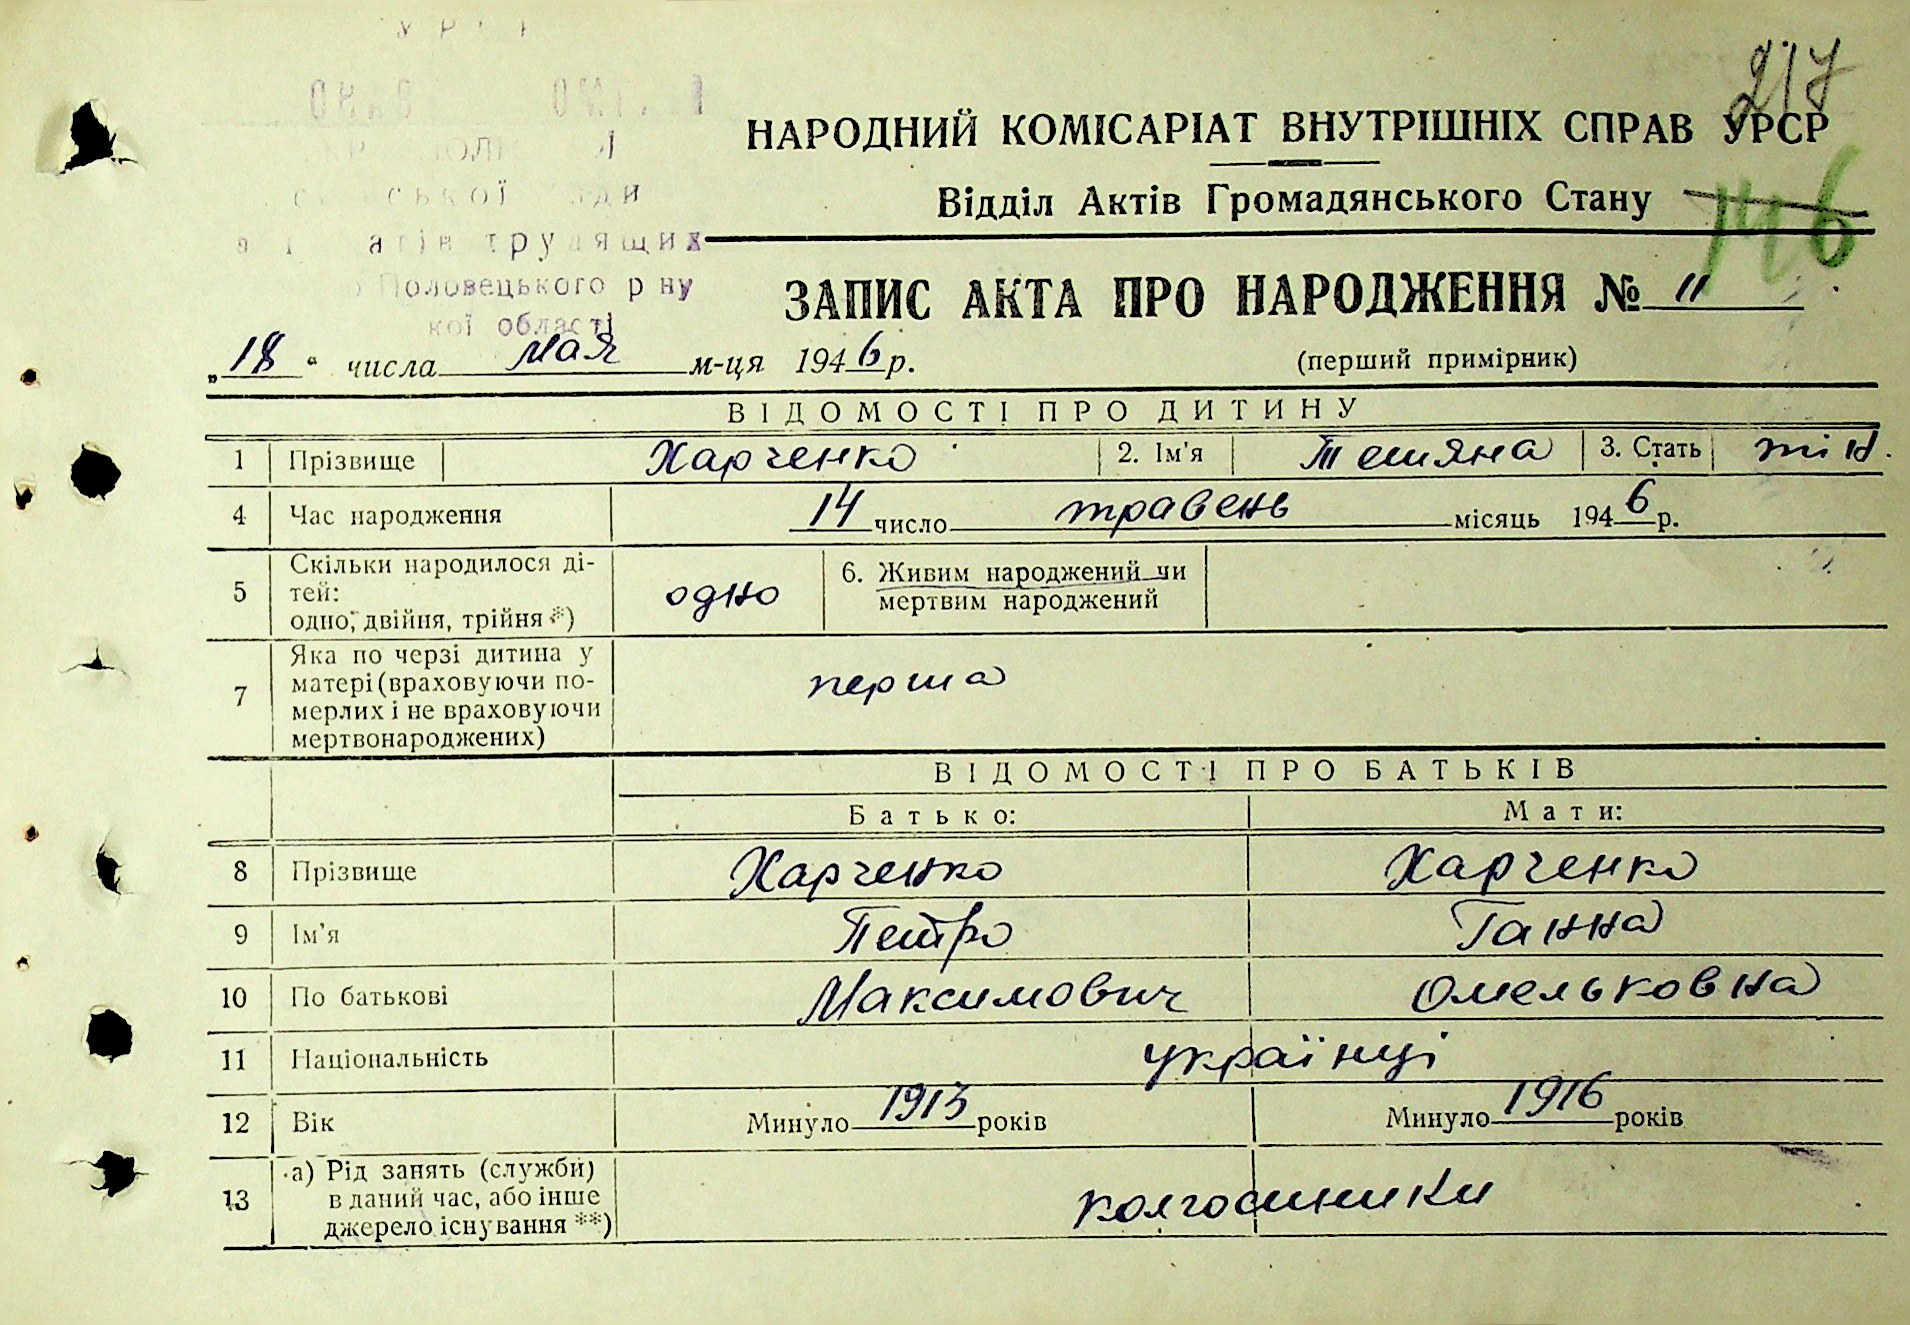 217
НАРОДНИЙ КОМІСАРІАТ ВНУТРІШНІХ СПРАВ УРСР
Відділ Актів Громадянського Стану
146
трудящих
Половецького р ну
кої області
ЗАПИС АКТА ПРО НАРОДЖЕННЯ № 11
„18“ числа мая м-ця 1946 р.
(перший примірник)
ВІДОМОСТІ ПРО ДИТИНУ
1 Прізвище Харченко 2. Ім'я Тетяна 3. Стать жін.
4 Час народження 14 число травень місяць 1946 р.
5 Скільки народилося ді-
тей:
одно, двійня, трійня *) одно
6. Живим народжений чи
мертвим народжений
7 Яка по черзі дитина у
матері (враховуючи по-
мерлих і не враховуючи
мертвонароджених) перша
ВІДОМОСТІ ПРО БАТЬКІВ
Батько: Мати:
8 Прізвище Харченко Харченко
9 Ім'я Петро Ганна
10 По батькові Максимович Омельковна
11 Національність українці
12 Вік Минуло 1913 років Минуло 1916 років
13 а) Рід занять (служби)
в даний час, або інше
джерело існування **) колгоспники